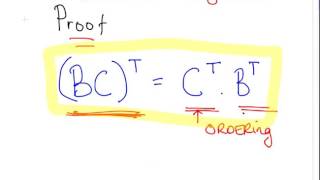 Proof
(BC)ᵀ = Cᵀ . Bᵀ
ORDERING